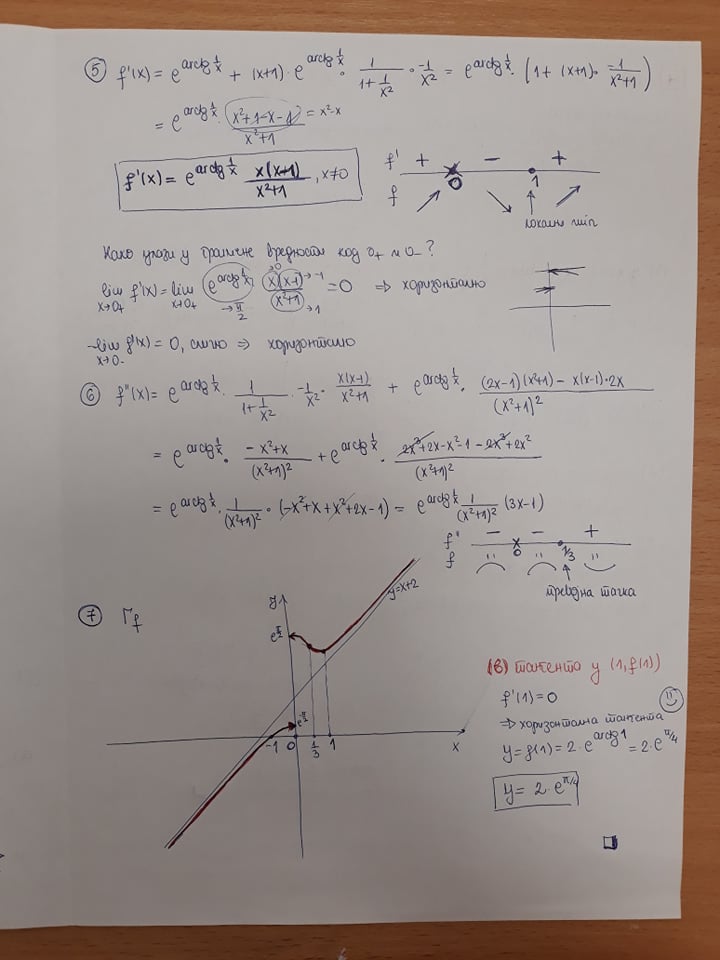 ⑤ f'(x) = e^{arctg 1/x} + (x+1)·e^{arctg 1/x} · 1/(1+1/x²) · -1/x² = e^{arctg 1/x} · (1 + (x+1)· -1/(x²+1))
= e^{arctg 1/x} · (x²+1-x-1)/(x²+1) = x²-x
f'(x) = e^{arctg 1/x} x(x-1)/(x²+1), x≠0
f' + - +
0 1
f
локални min
Како улази у граничне вредности код 0+ и 0- ?
lim x→0+ f'(x) = lim x→0+ e^{arctg 1/x} →π/2 x →0 (x-1) →-1 / (x²+1) →1 = 0 ⇒ хоризонтално
lim x→0- f'(x) = 0, слично ⇒ хоризонтално
⑥ f''(x) = e^{arctg 1/x} · 1/(1+1/x²) · -1/x² · x(x-1)/(x²+1) + e^{arctg 1/x} · ((2x-1)(x²+1) - x(x-1)·2x)/(x²+1)²
= e^{arctg 1/x} · (-x²+x)/(x²+1)² + e^{arctg 1/x} · (2x³+2x-x²-1-2x³+2x²)/(x²+1)²
= e^{arctg 1/x} · 1/(x²+1)² · (-x²+x+x²+2x-1) = e^{arctg 1/x} 1/(x²+1)² (3x-1)
f'' - - +
0 1/3
f
превојна тачка
⑦ Γf
y
y=x+2
e^{π/2}
e^{-π/2}
-1 0 1/3 1 x
(в) тангента у (1, f(1))
f'(1) = 0
⇒ хоризонтална тангента
y = f(1) = 2·e^{arctg 1} = 2·e^{π/4}
y = 2·e^{π/4}